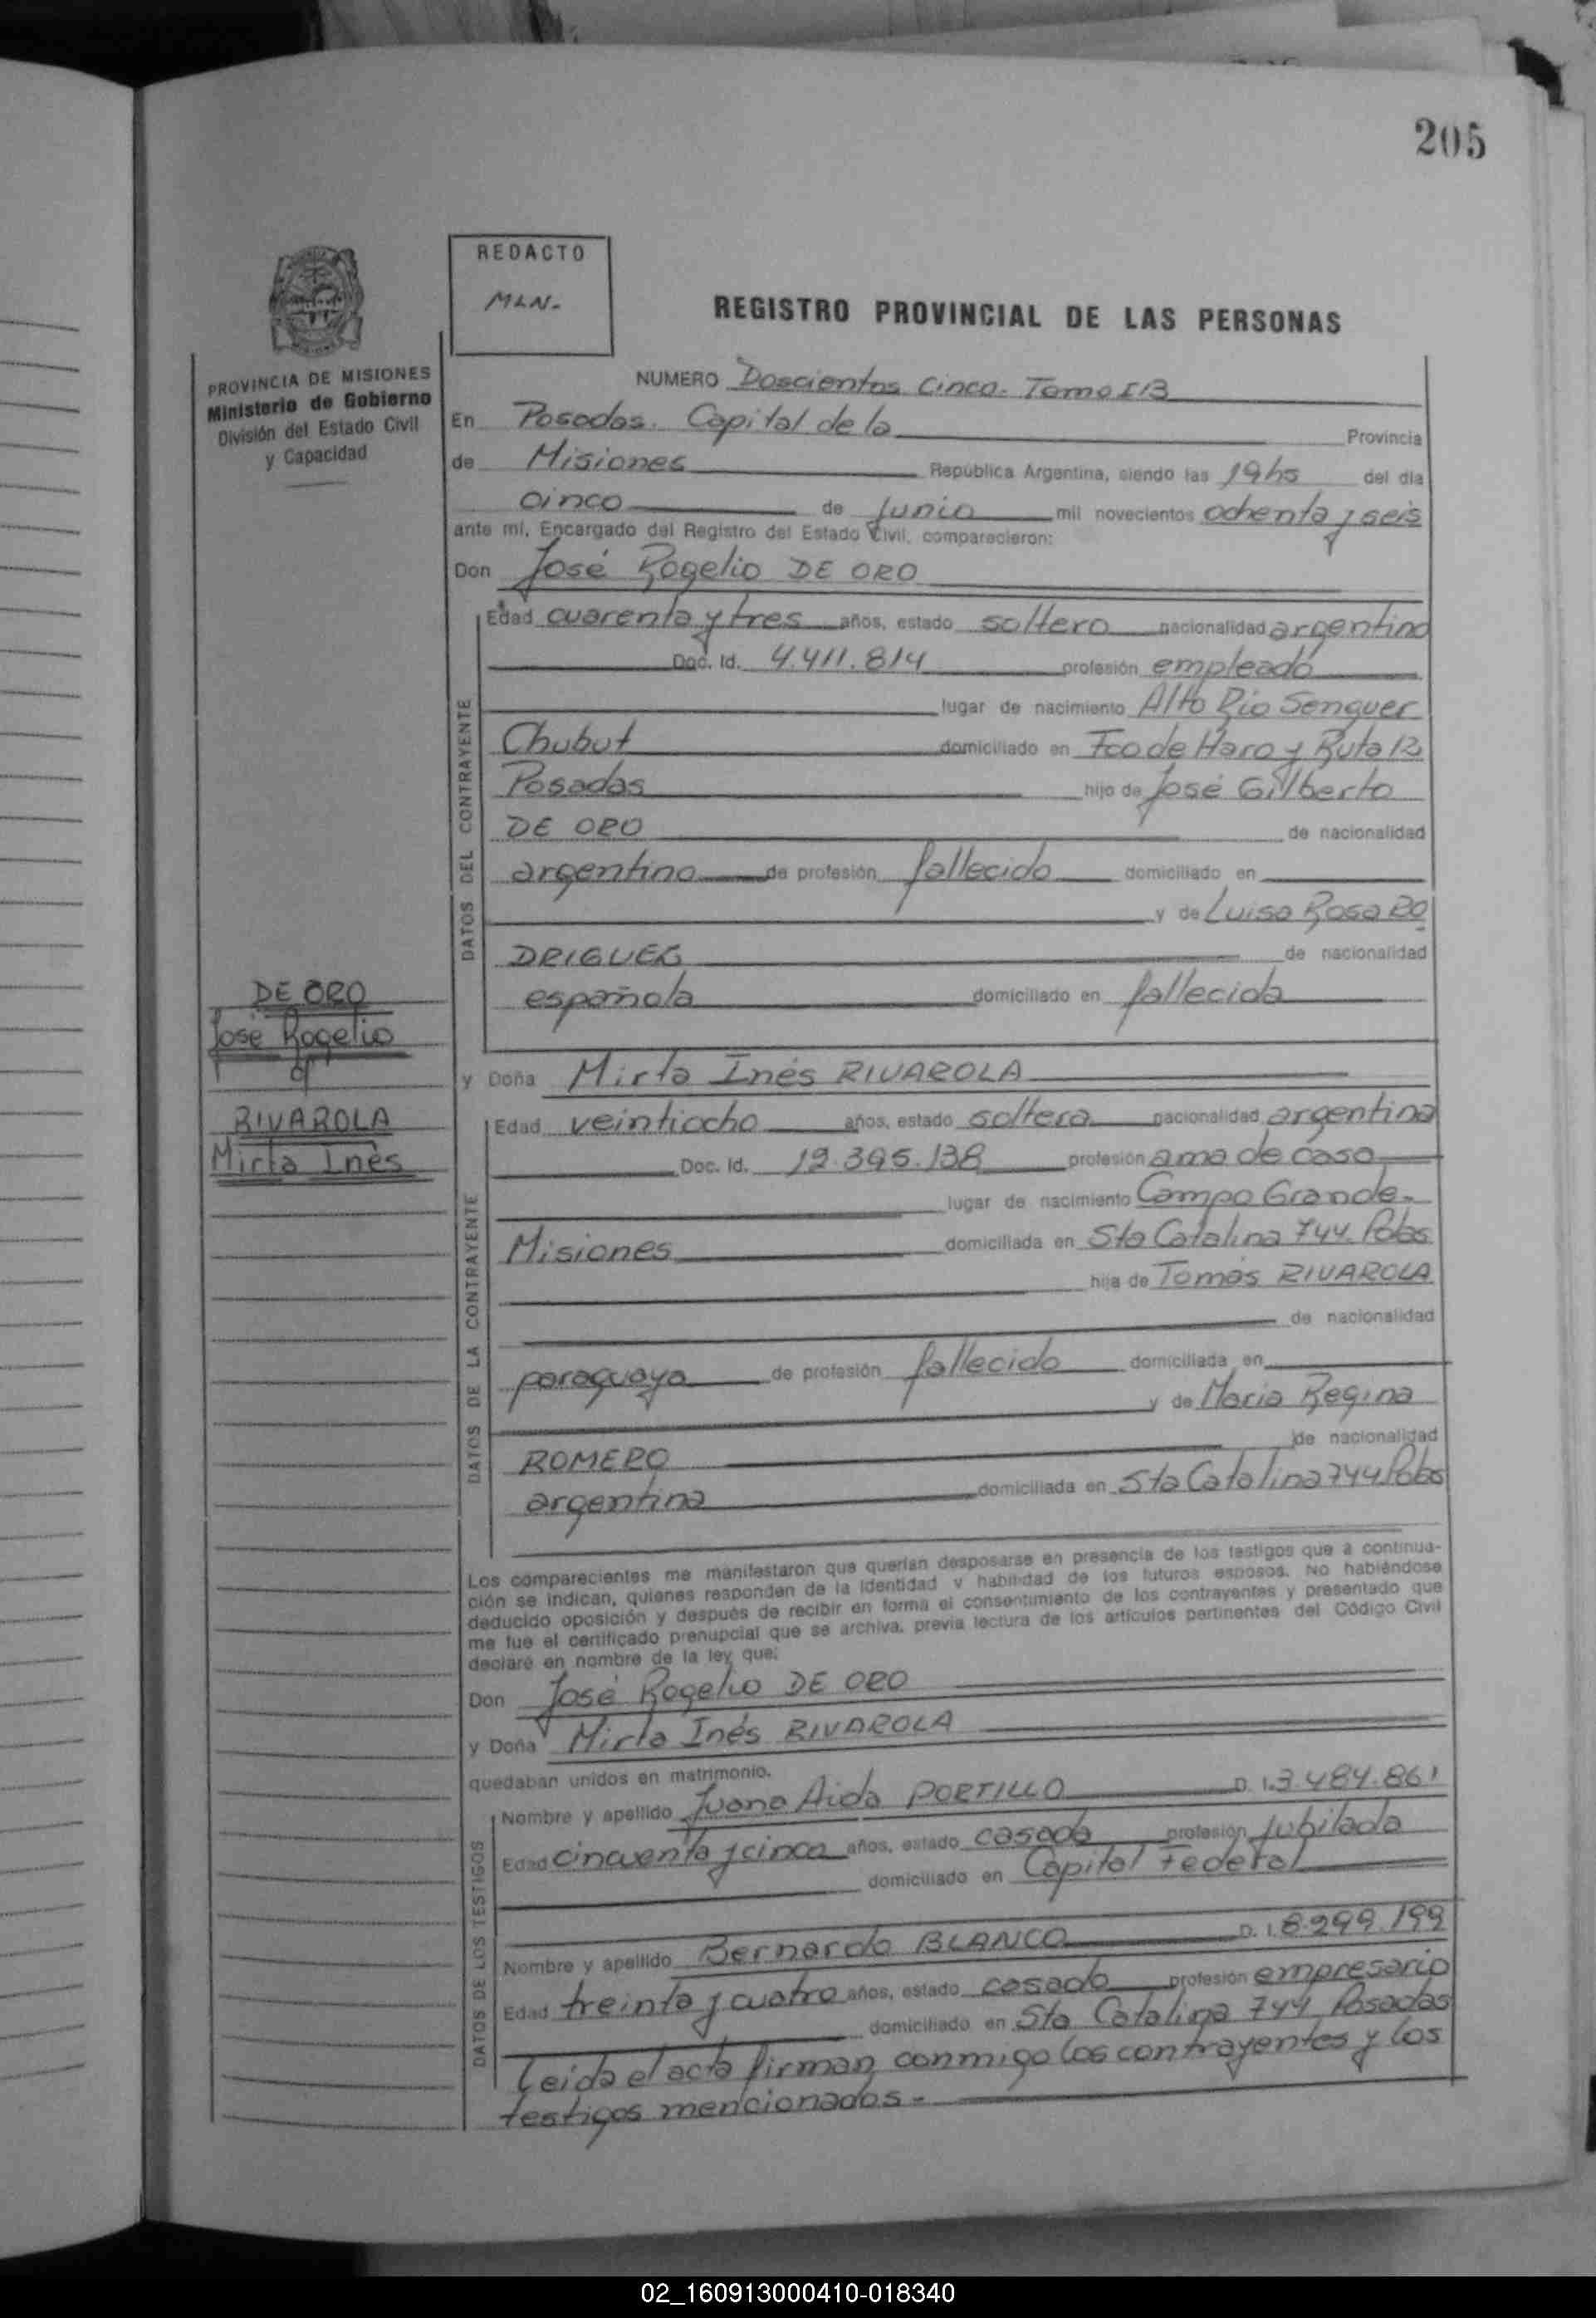 205
REDACTO
MLN.-
REGISTRO PROVINCIAL DE LAS PERSONAS
PROVINCIA DE MISIONES
Ministerio de Gobierno
División del Estado Civil
y Capacidad
NUMERO Doscientos Cinco. Tomo I/B
En Posadas. Capital de la Provincia
de Misiones República Argentina, siendo las 19hs del día
cinco de Junio mil novecientos ochenta y seis
ante mí, Encargado del Registro del Estado Civil, comparecieron:
Don José Rogelio DE ORO
Edad cuarenta y tres años, estado soltero nacionalidad argentino
Doc. Id. 4.411.814 profesión empleado
lugar de nacimiento Alto Rio Senguer
Chubut domiciliado en Fco de Haro y Ruta 12
Posadas hijo de José Gilberto
DE ORO de nacionalidad
argentino de profesión fallecido domiciliado en
y de Luisa Rosa RO
DRIGUEZ de nacionalidad
española domiciliado en fallecida
DATOS DEL CONTRAYENTE
DE ORO
José Rogelio
c/
RIVAROLA
Mirta Inés
y Doña Mirta Inés RIVAROLA
Edad veintiocho años, estado soltera nacionalidad argentina
Doc. Id. 12.395.138 profesión ama de casa
lugar de nacimiento Campo Grande.
Misiones domiciliada en Sta Catalina 744. Pdas
hija de Tomás RIVAROLA
de nacionalidad
paraguaya de profesión fallecido domiciliada en
y de Maria Regina
ROMERO de nacionalidad
argentina domiciliada en Sta Catalina 744 Pdas
DATOS DE LA CONTRAYENTE
Los comparecientes me manifestaron que querían desposarse en presencia de los testigos que a continua-
ción se indican, quienes responden de la identidad y habilidad de los futuros esposos. No habiéndose
deducido oposición y después de recibir en forma el consentimiento de los contrayentes y presentado que
me fue el certificado prenupcial que se archiva, previa lectura de los artículos pertinentes del Código Civil
declaré en nombre de la ley que:
Don José Rogelio DE ORO
y Doña Mirta Inés RIVAROLA
quedaban unidos en matrimonio.
Nombre y apellido Juana Aida PORTILLO D. I. 3.484.861
Edad cincuenta y cinco años, estado casada profesión Jubilada
domiciliado en Capital Federal
Nombre y apellido Bernardo BLANCO D. I. 8.299.199
Edad treinta y cuatro años, estado casado profesión empresario
domiciliado en Sta Catalina 744 Posadas
DATOS DE LOS TESTIGOS
Leida el acta firman conmigo los contrayentes y los
testigos mencionados.-
02_160913000410-018340